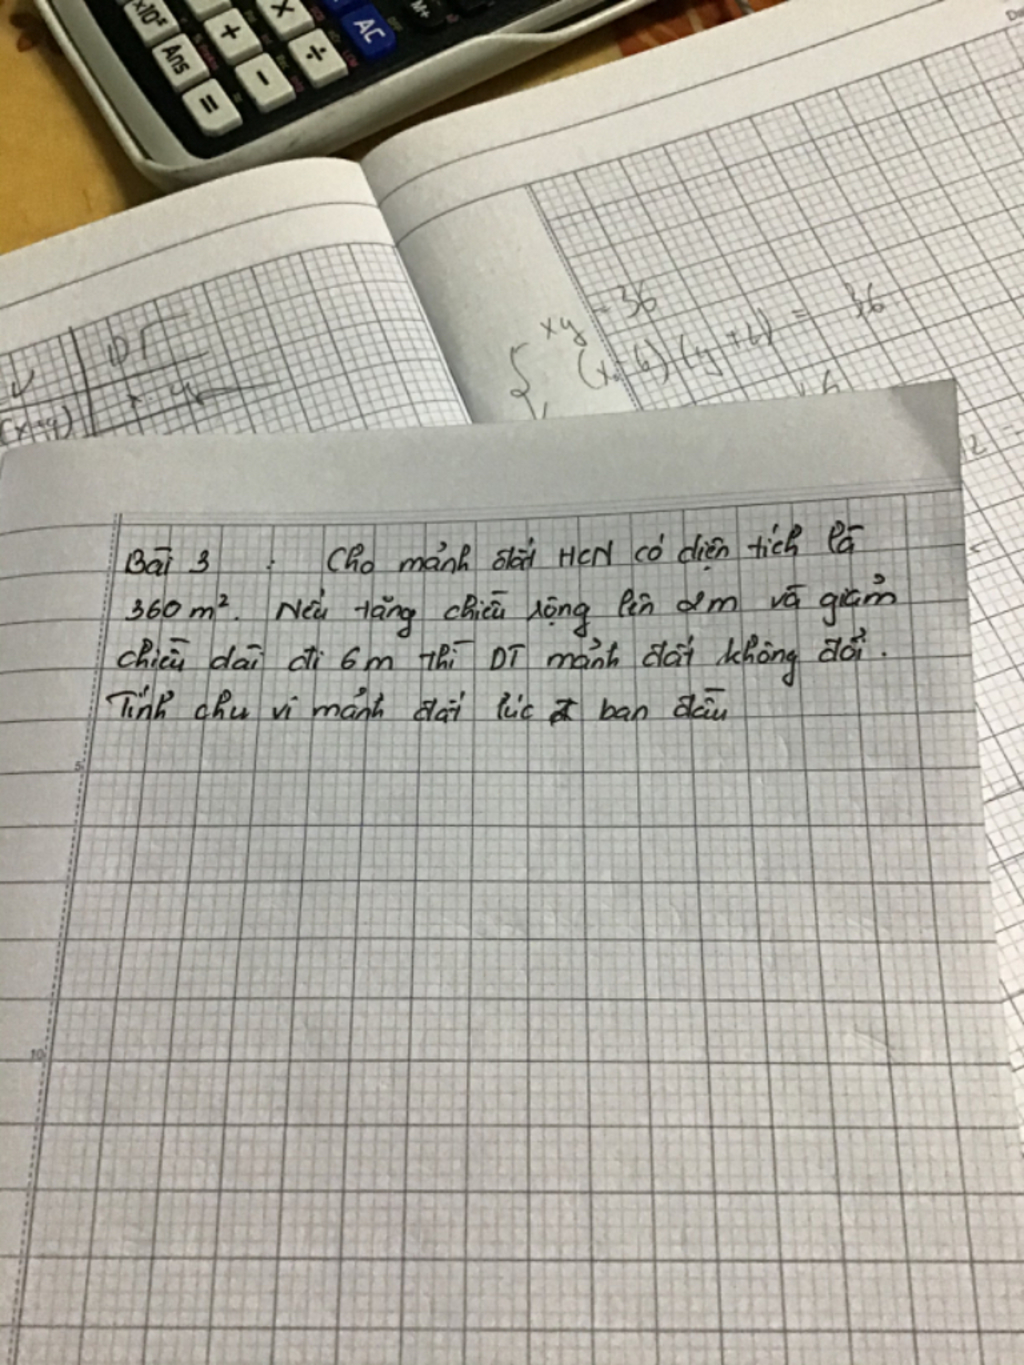 ×10ˣ
×
+
÷
AC
M+
Ans
-
=
xy = 36
DT
V
(x+y)
Bài 3 : Cho mảnh đất HCN có diện tích là
360 m². Nếu tăng chiều rộng lên 2m và giảm
chiều dài đi 6m thì DT mảnh đất không đổi.
Tính chu vi mảnh đất lúc ban đầu
5
10